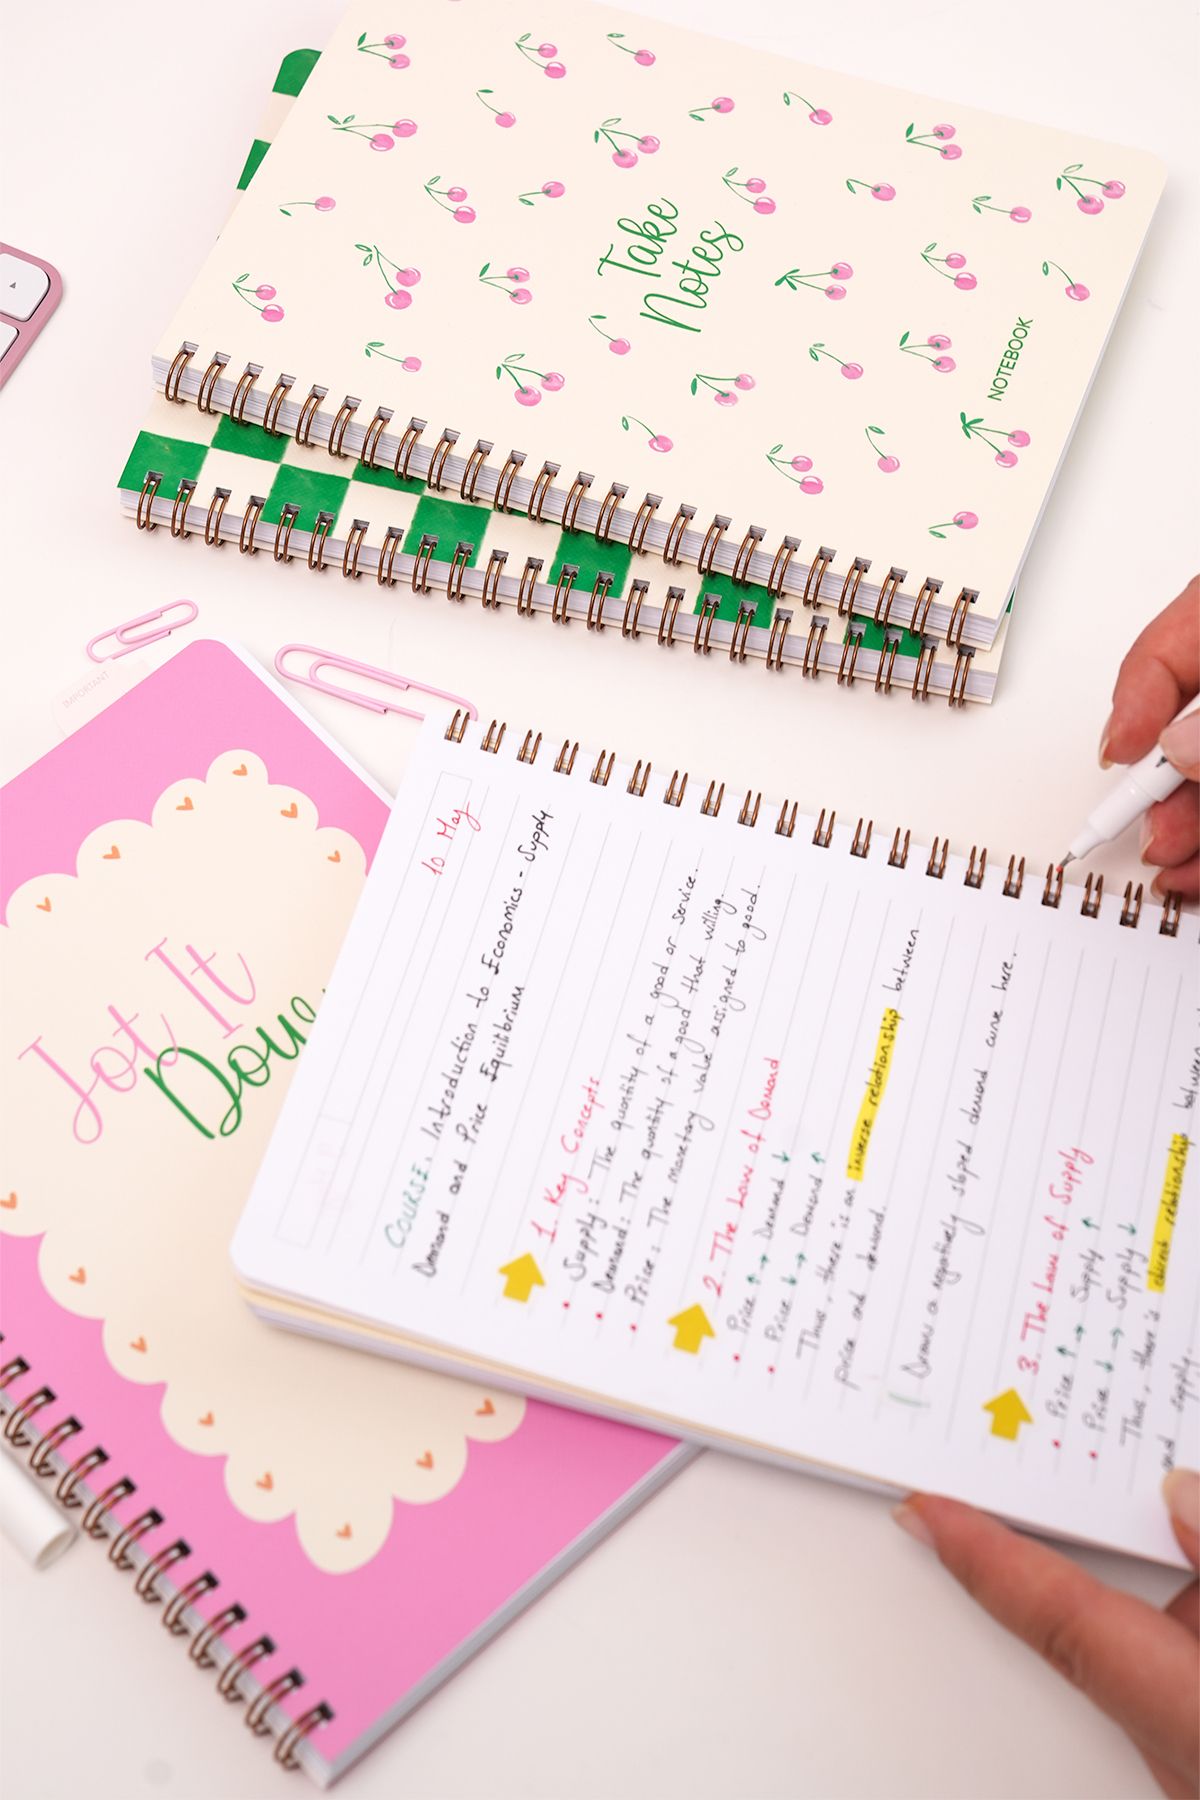 Take
Notes
NOTEBOOK
IMPORTANT
Jot It
Down
10 May
COURSE: Introduction to Economics - Supply
Demand and Price Equilibrium
1. Key Concepts
• Supply: The quantity of a good or service.
• Demand: The quantity of a good that willing.
• Price: The monetary value assigned to good.
2. The Law of Demand
• Price ↑ → Demand ↓
• Price ↓ → Demand ↑
Thus, there is an inverse relationship between
price and demand.
Draw a negatively sloped demand curve here.
3. The Law of Supply
• Price ↑ → Supply ↑
• Price ↓ → Supply ↓
Thus, there is direct relationship between
and supply.